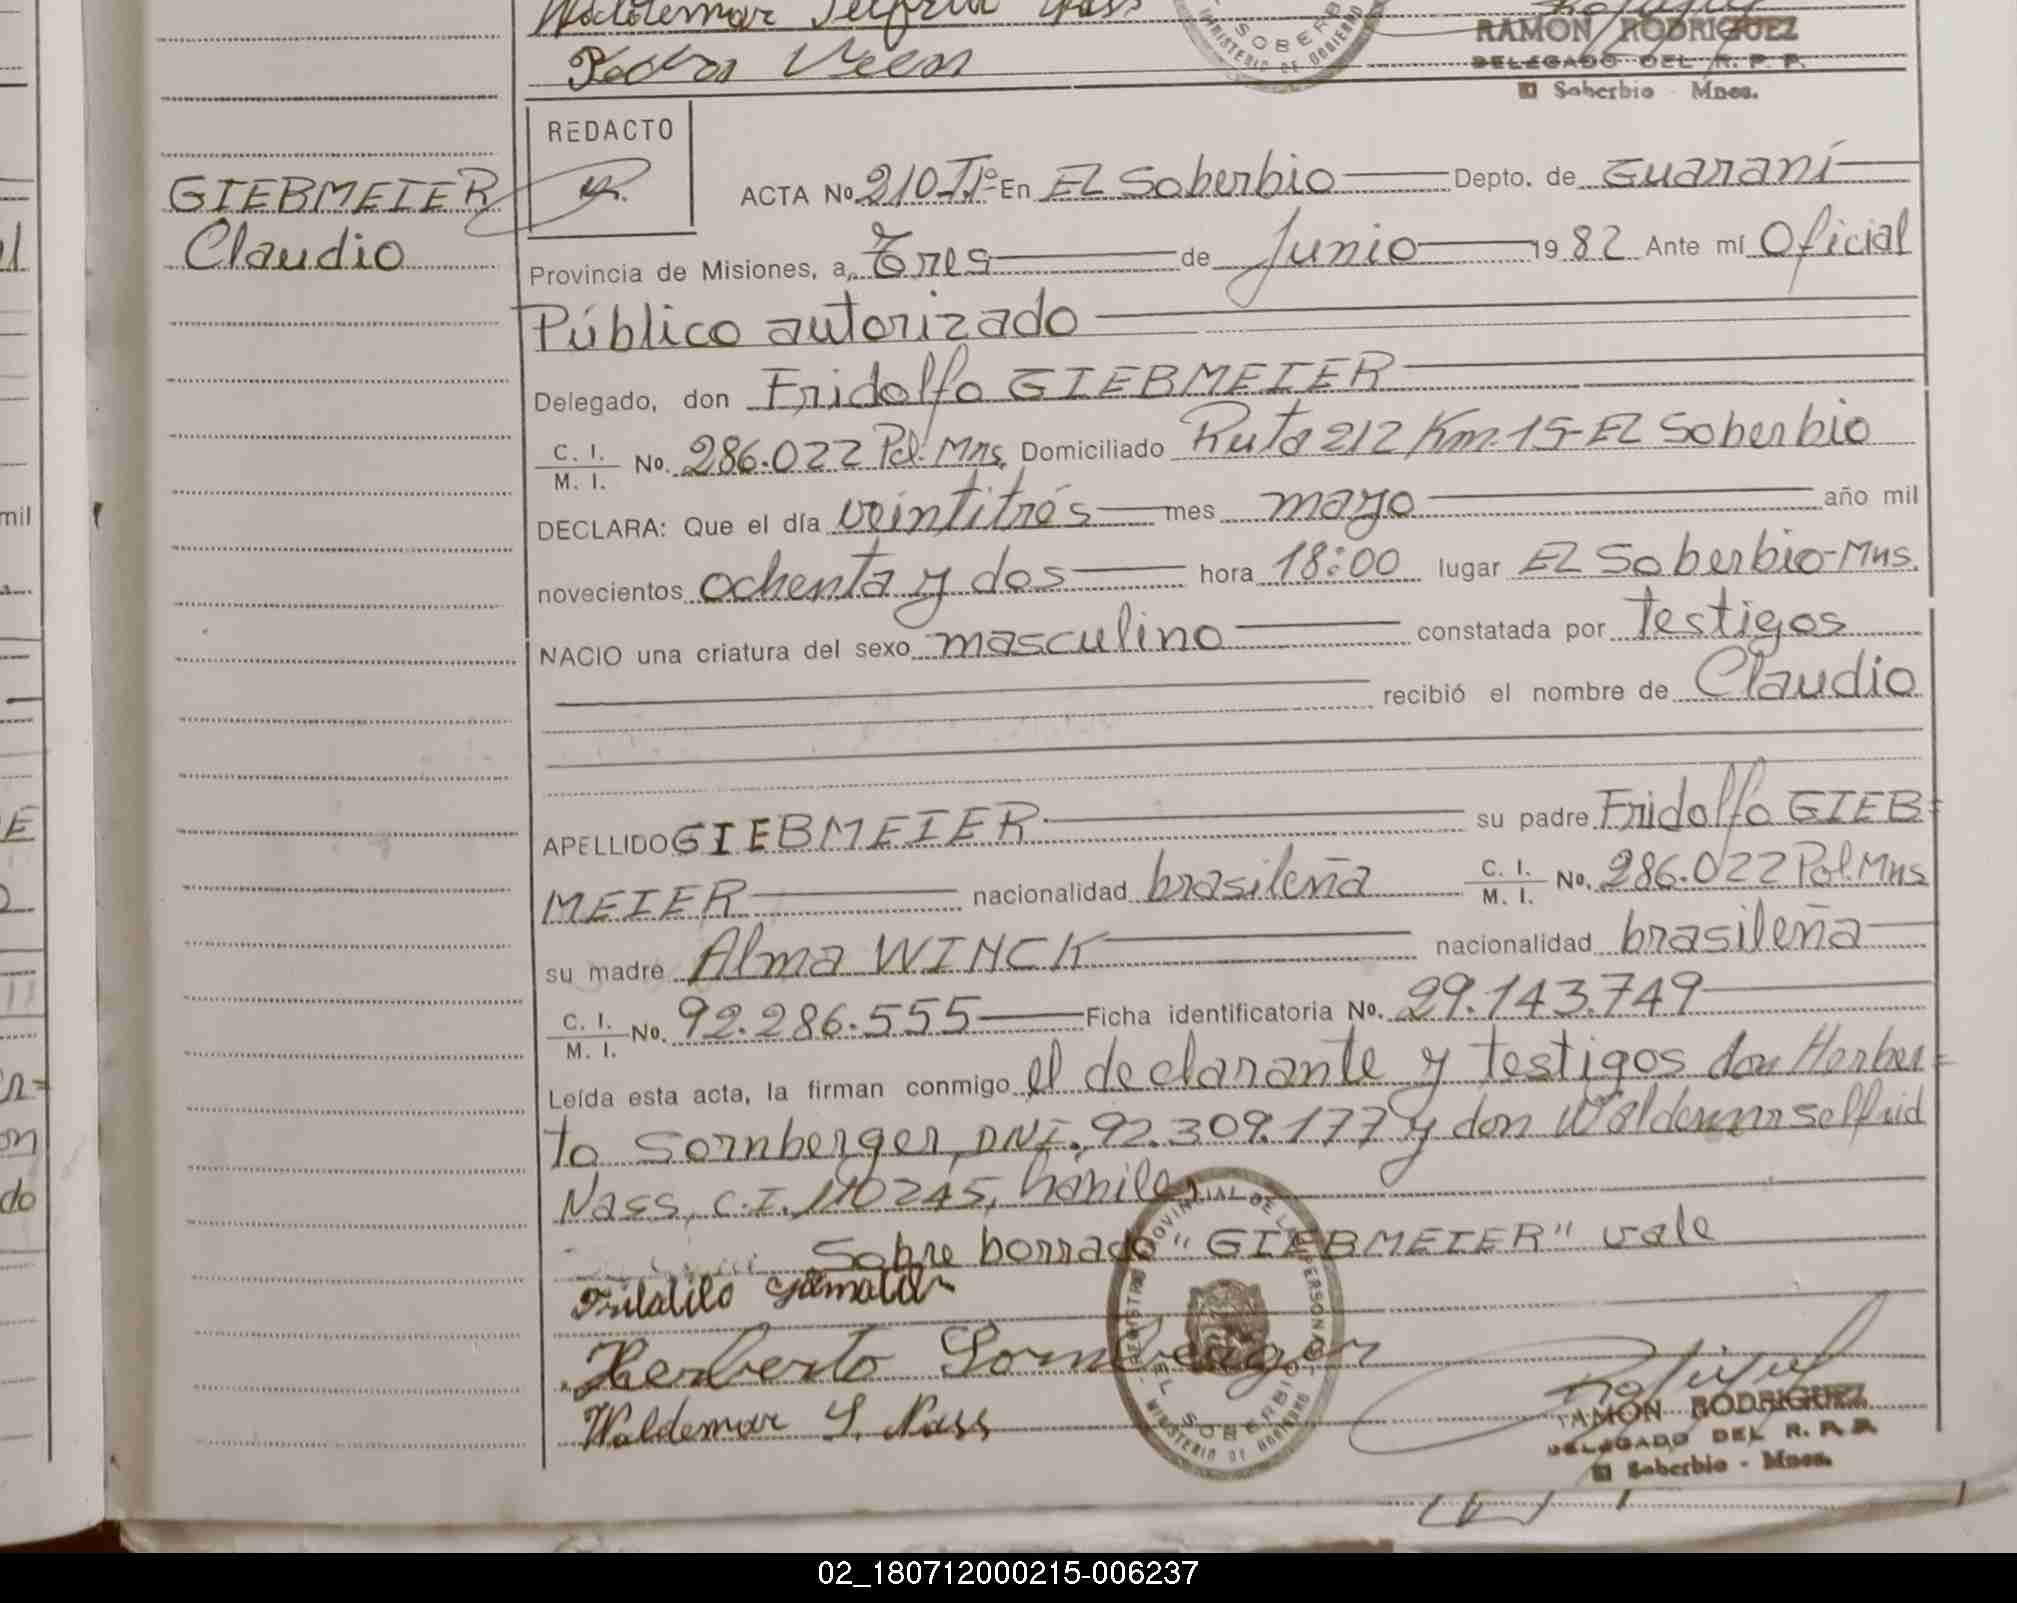 Pedro Veen
RAMON RODRIGUEZ
DELEGADO DEL R. P. P.
El Soberbio - Mnes.
REDACTO
GIEBMEIER
Claudio
ACTA No. 210 Tº I En El Soberbio Depto. de Guaraní
Provincia de Misiones, a Tres de Junio 19 82 Ante mí Oficial
Público autorizado
Delegado, don Fridolfo GIEBMEIER
C. I. M. I. No. 286.022 Pol. Mns. Domiciliado Ruta 212 Km. 15-El Soberbio
DECLARA: Que el día veintitrés mes mayo año mil
novecientos ochenta y dos hora 18:00 lugar El Soberbio-Mns.
NACIO una criatura del sexo masculino constatada por testigos
recibió el nombre de Claudio
APELLIDO GIEBMEIER su padre Fridolfo GIEB=
MEIER nacionalidad brasileña C. I. M. I. No. 286.022 Pol. Mns
su madre Alma WINCK nacionalidad brasileña
C. I. M. I. No. 92.286.555 Ficha identificatoria No. 29.143.749
Leída esta acta, la firman conmigo el declarante y testigos don Herber=
to Sornberger, DNI. 92.309.177 y don Waldemar Selfrid
Nass, C.I. 110245, hábiles
Sobre borrado "GIEBMEIER" vale
Herberto Sornberger
Waldemar S. Nass
REGISTRO PROVINCIAL DE LAS PERSONAS
EL SOBERBIO
MINISTERIO DE GOBIERNO
RAMON RODRIGUEZ
DELEGADO DEL R. P. P.
El Soberbio - Mnes.
02_180712000215-006237